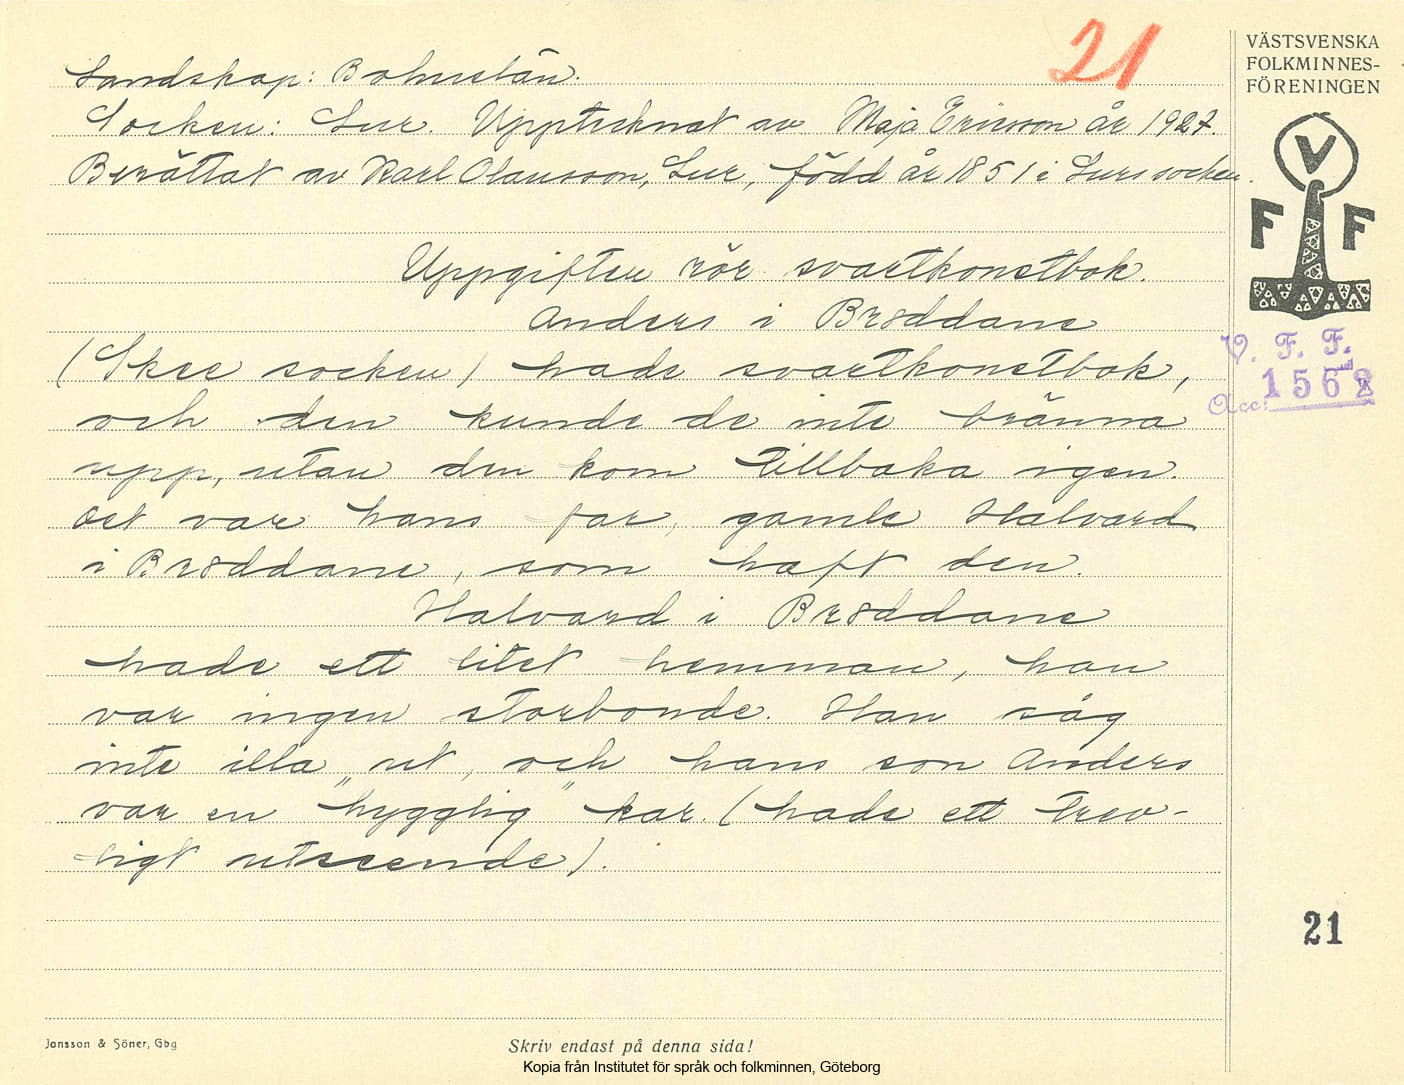 21
VÄSTSVENSKA
FOLKMINNES-
FÖRENINGEN
V
F F
V. F. F.
Acc: 1562
Landskap: Bohuslän.
Socken: Lur. Upptecknat av Maja Ericsson år 1927
Berättat av Karl Olausson, Lur, född år 1851 i Lurs socken.
Uppgiften rör svartkonstbok.
Anders i Brøddane
(Skee socken) hade svartkonstbok,
och den kunde de inte bränna
upp, utan den kom tillbaka igen.
Det var hans far, gamle Halvard
i Brøddane, som haft den.
Halvard i Brøddane
hade ett litet hemman, han
var ingen storbonde. Han såg
inte illa ut, och hans son Anders
var en "hygglig" kar. (hade ett trev-
ligt utseende).
21
Jonsson & Söner, Gbg
Skriv endast på denna sida!
Kopia från Institutet för språk och folkminnen, Göteborg